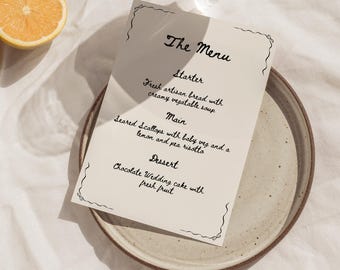 The Menu
Starter
Fresh artisan bread with
creamy vegetable soup
Main
Seared Scallops with baby veg and a
lemon and pea risotto
Dessert
Chocolate Wedding cake with
fresh fruit